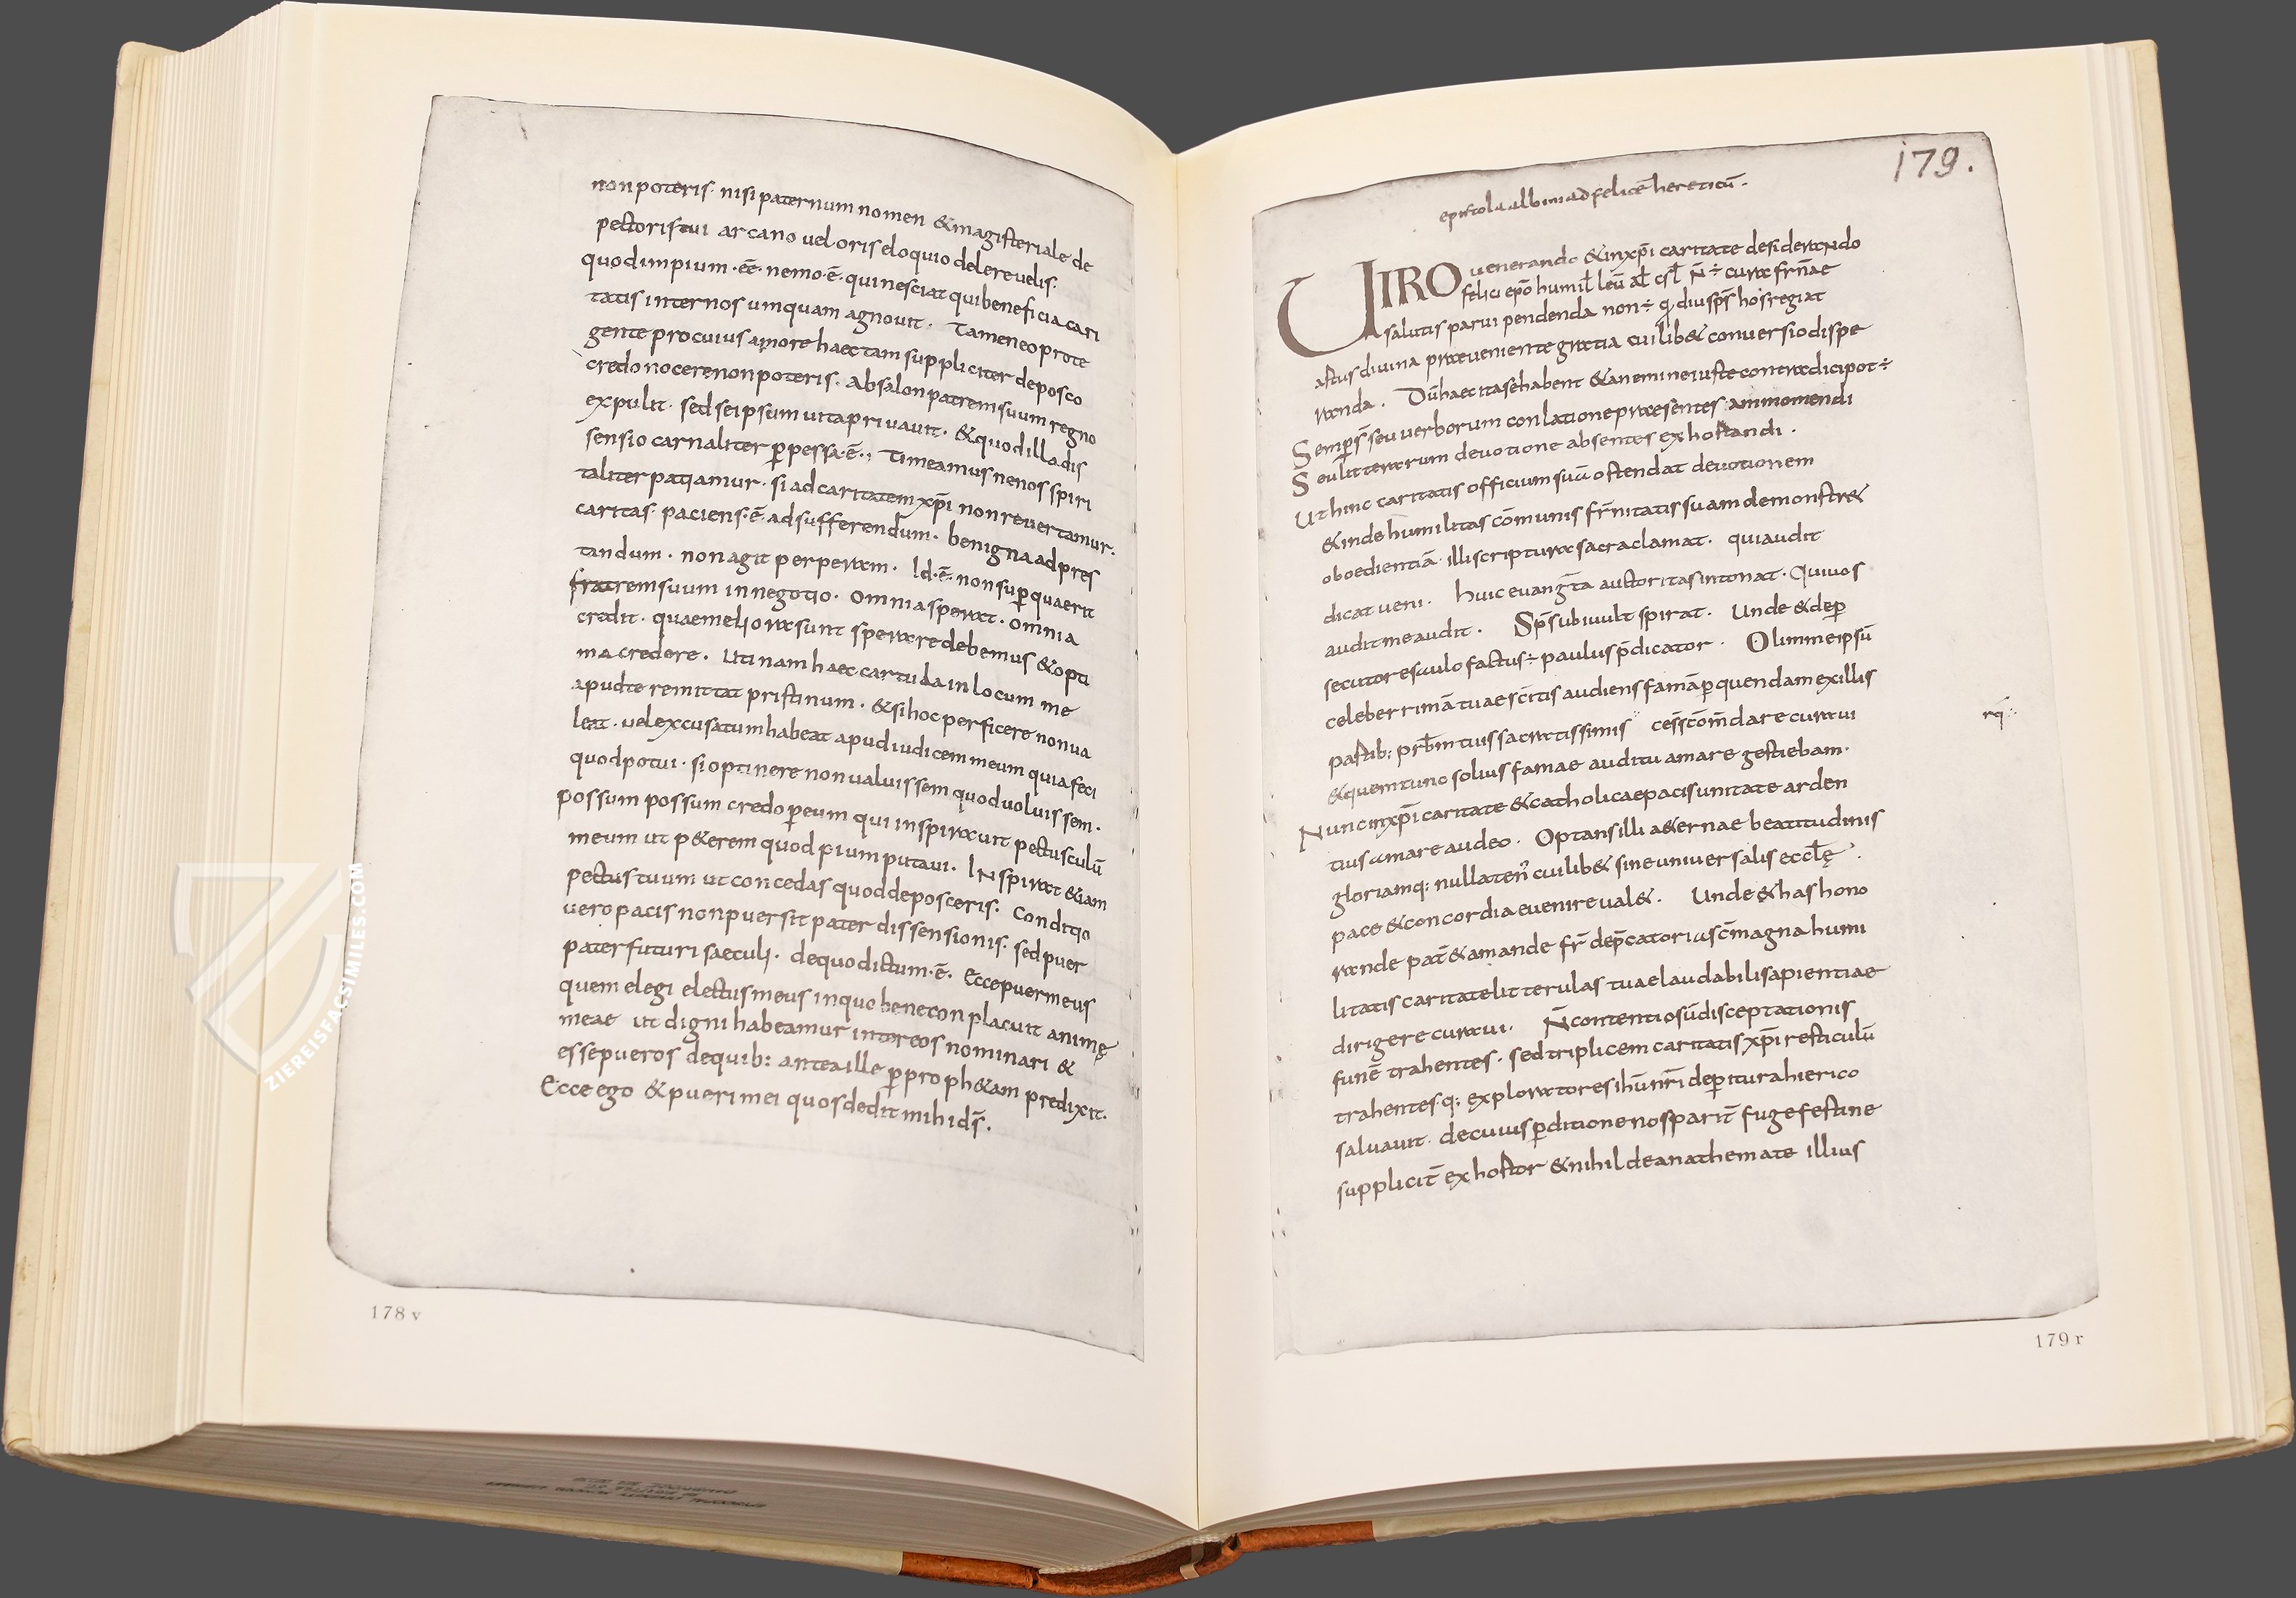 non poteris· nisi paternum nomen & magisteriale de
pectoris tui arcano vel oris eloquio delere velis·
quod impium·eē· nemo·ē· qui nesciat qui beneficia cari
tatis inter nos umquam agnouit· Tamen eo prote
gente pro cuius amore haec tam suppliciter deposco
credo nocere non poteris· absalon patrem suum regno
expulit· sed se ipsum uita priuauit· & quod illa dis
sensio carnaliter ꝑpessa·ē·, Timeamus ne nos spiri
taliter patiamur· si ad caritatem xp̄i non reuertamur·
caritas paciens·ē· ad sufferendum· benigna ad pres
tandum· non agit perperam· Id·ē· non suꝑ quaerit
fratrem suum in negotio· omnia sperat· omnia
credit· quae meliora sunt sperare debemus & opti
ma credere· Utinam haec cartula in locum me
apud te remittat pristinum· & si hoc perficere non ua
leat· uel excusatum habeat apud iudicem meum quia feci
quod potui· si optinere non ualuissem quod uoluissem·
possum possum credo ꝑ eum qui inspirauit pectusculū
meum ut p&erem quod pium putaui· INspirat &iam
pectus tuum ut concedas quod deposceris· Conditio
uero pacis non puer sit pater dissensionis· sed puer
pater futuri saeculi· de quo dictum·ē· Ecce puer meus
quem elegi electus meus in quo bene conplacuit animę
meae ut digni habeamur inter eos nominari &
esse pueros de quib: antea ille ꝑ proph&am predixit·
Ecce ego & pueri mei quos dedit mihi dς̄·
178 v
179.
epistola albini ad felicē hereticū·
UIRO uenerando & in xp̄i caritate desiderando
felici epō humil leū al csl N̄ ÷ cura frn̄ae
salutis parui pendenda non÷ q diu sp̄s hos regiat
astus diuina praeueniente gratia cuilib& conuersio dispe
randa· Dū haec ita se habent & a nemine iuste contradici pot÷
Semp̄ seu uerborum conlatione praesentes ammonendi
Seu litterarum deuotione absentes exhortandi·
Ut hinc caritatis officium suū ostendat deuotionem
& inde humilitas cōmunis fr̄nitatis suam demonstr&
oboedientiā illi scriptura sacra clamat· qui audit
dicat ueni· huic euanḡta auctoritas intonat· Qui uos
audit me audit· Sp̄s ubi uult spirat· Unde & de ꝑ
secutore sęculo factus÷ paulus p̄dicator· Olim me ipsū
celeberrimā tuae sc̄itis audiens famā ꝑ quendam ex illis
pastib: prb̄m tuis sacratissimis cess cōm̄dare curaui
rq
& quem tunc solius famae auditu amare gestiebam·
Nunc in xp̄i caritate & catholicae pacis unitate arden
tius amare audeo· Optans illi a&ernae beatitudinis
gloriamq: nullaten' cuilib& sine uniuersalis eccl̄ę
pace & concordia euenire ual&· Unde & has hono
rande pat̄ & amande fr̄ dep̄catorias cū magna humi
litatis caritate litterulas tuae laudabili sapientiae
dirigere curaui· N̄ contentiosū disceptationis
funē trahentes· sed triplicem caritatis xp̄i resticulū
trahentes·q: exploratores ihū nr̄i de ꝑitura hierico
saluauit· de cuius ꝑditione nos parit̄ fuge festine
supplicit̄ exhortor & nihil de anathemate illius
179 r
ZIEREISFACSIMILES.COM